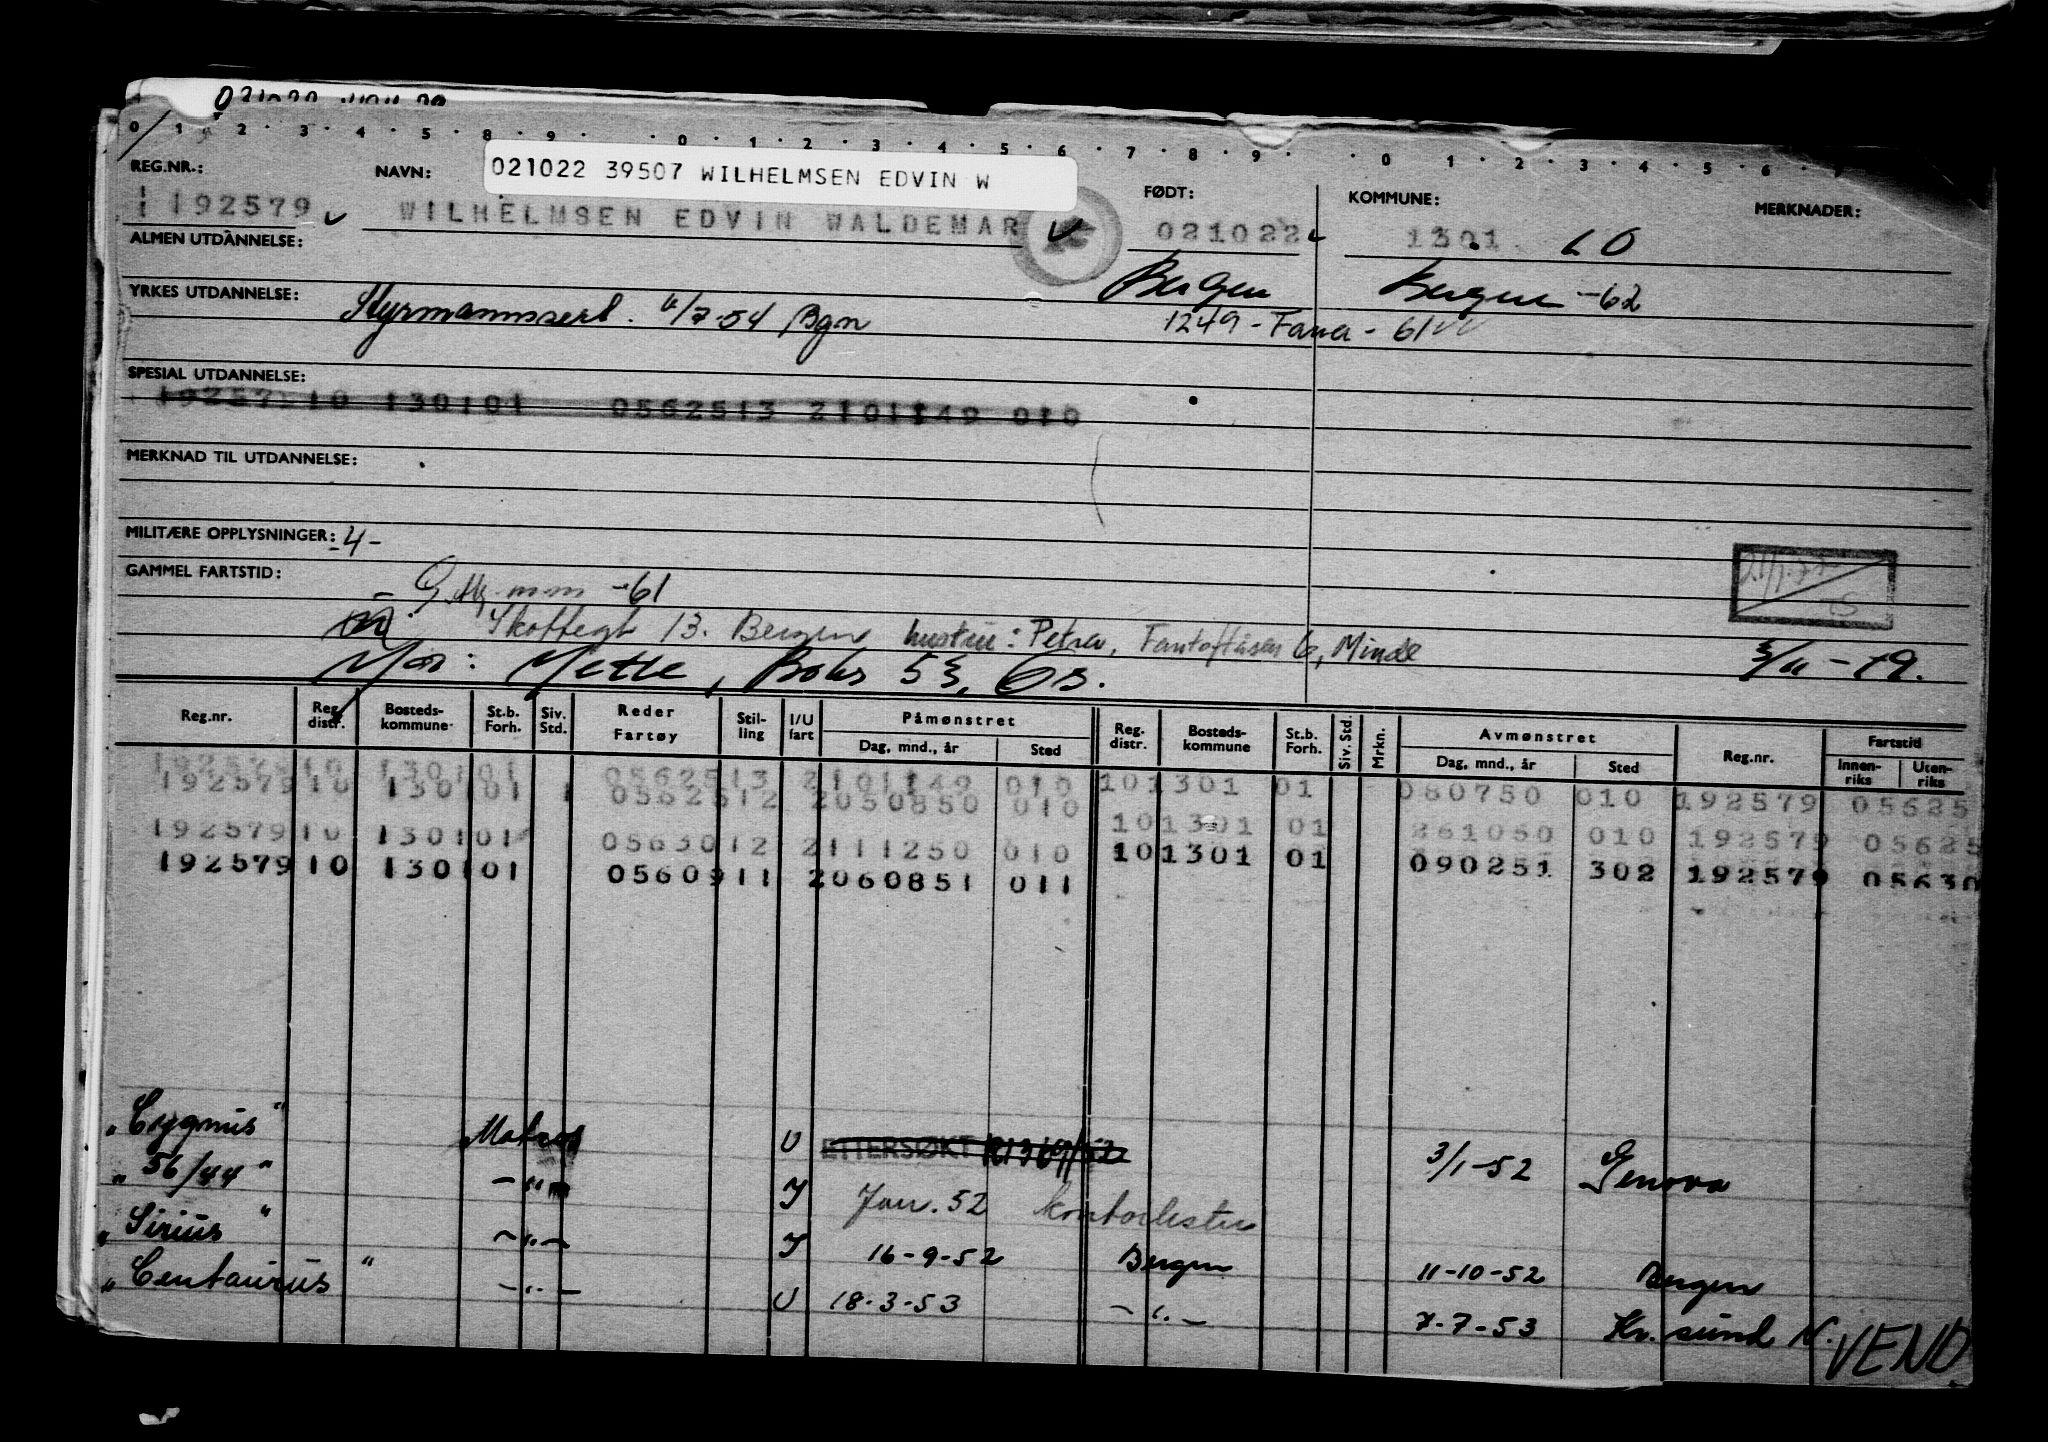 0 1 2 3 4 5 8 9 0 1 2 3 4 5 6 7 8 9 0 1 2 3 4 5 6
REG.NR.: NAVN: 021022 39507 WILHELMSEN EDVIN W FØDT: KOMMUNE: MERKNADER:
192579 WILHELMSEN EDVIN WALDEMAR 021022 1301 LO
ALMEN UTDANNELSE:
Bergen Bergen -62
YRKES UTDANNELSE: Styrmannssert. /7-54 Bgn 1249 - Fana - 61
SPESIAL UTDANNELSE:
192579 10 130101 0562513 2101149 010
MERKNAD TIL UTDANNELSE:
MILITÆRE OPPLYSNINGER: -4-
GAMMEL FARTSTID: -61
Skottegt 13. Bergen hustru: Petra, Fantoftåsen 6, Minde
Mor: Mette, Boks 53, Os. -79.
Reg.nr. Reg. distr. Bosteds-kommune St.b. Forh. Siv. Std. Reder Fartøy Stil-ling I/U fart Påmønstret Dag, mnd., år Sted Reg. distr. Bosteds-kommune St.b. Forh. Siv. Std. Mrkn. Avmønstret Dag, mnd., år Sted Reg.nr. Fartstid Innen-riks Uten-riks
192579 10 1301 01 0562513 2101149 010 10 1301 01 080750 010 192579 05625
192579 10 1301 01 1 0562512 2050850 010 10 1301 01 261050 010 192579 05625
192579 10 1301 01 0563012 2111250 010 10 1301 01 090251 302 192579 05630
192579 10 1301 01 0560911 2060851 011
"Cygnus" Matros U ETTERSØKT 3/1-52 Genova
"56/44" -"- I Jan. 52 kontorlister
"Sirius" -"- I 16-9-52 Bergen 11-10-52 Bergen
"Centaurus" -"- U 18-3-53 -"- 7-7-53 Kr. sund N.
VEND